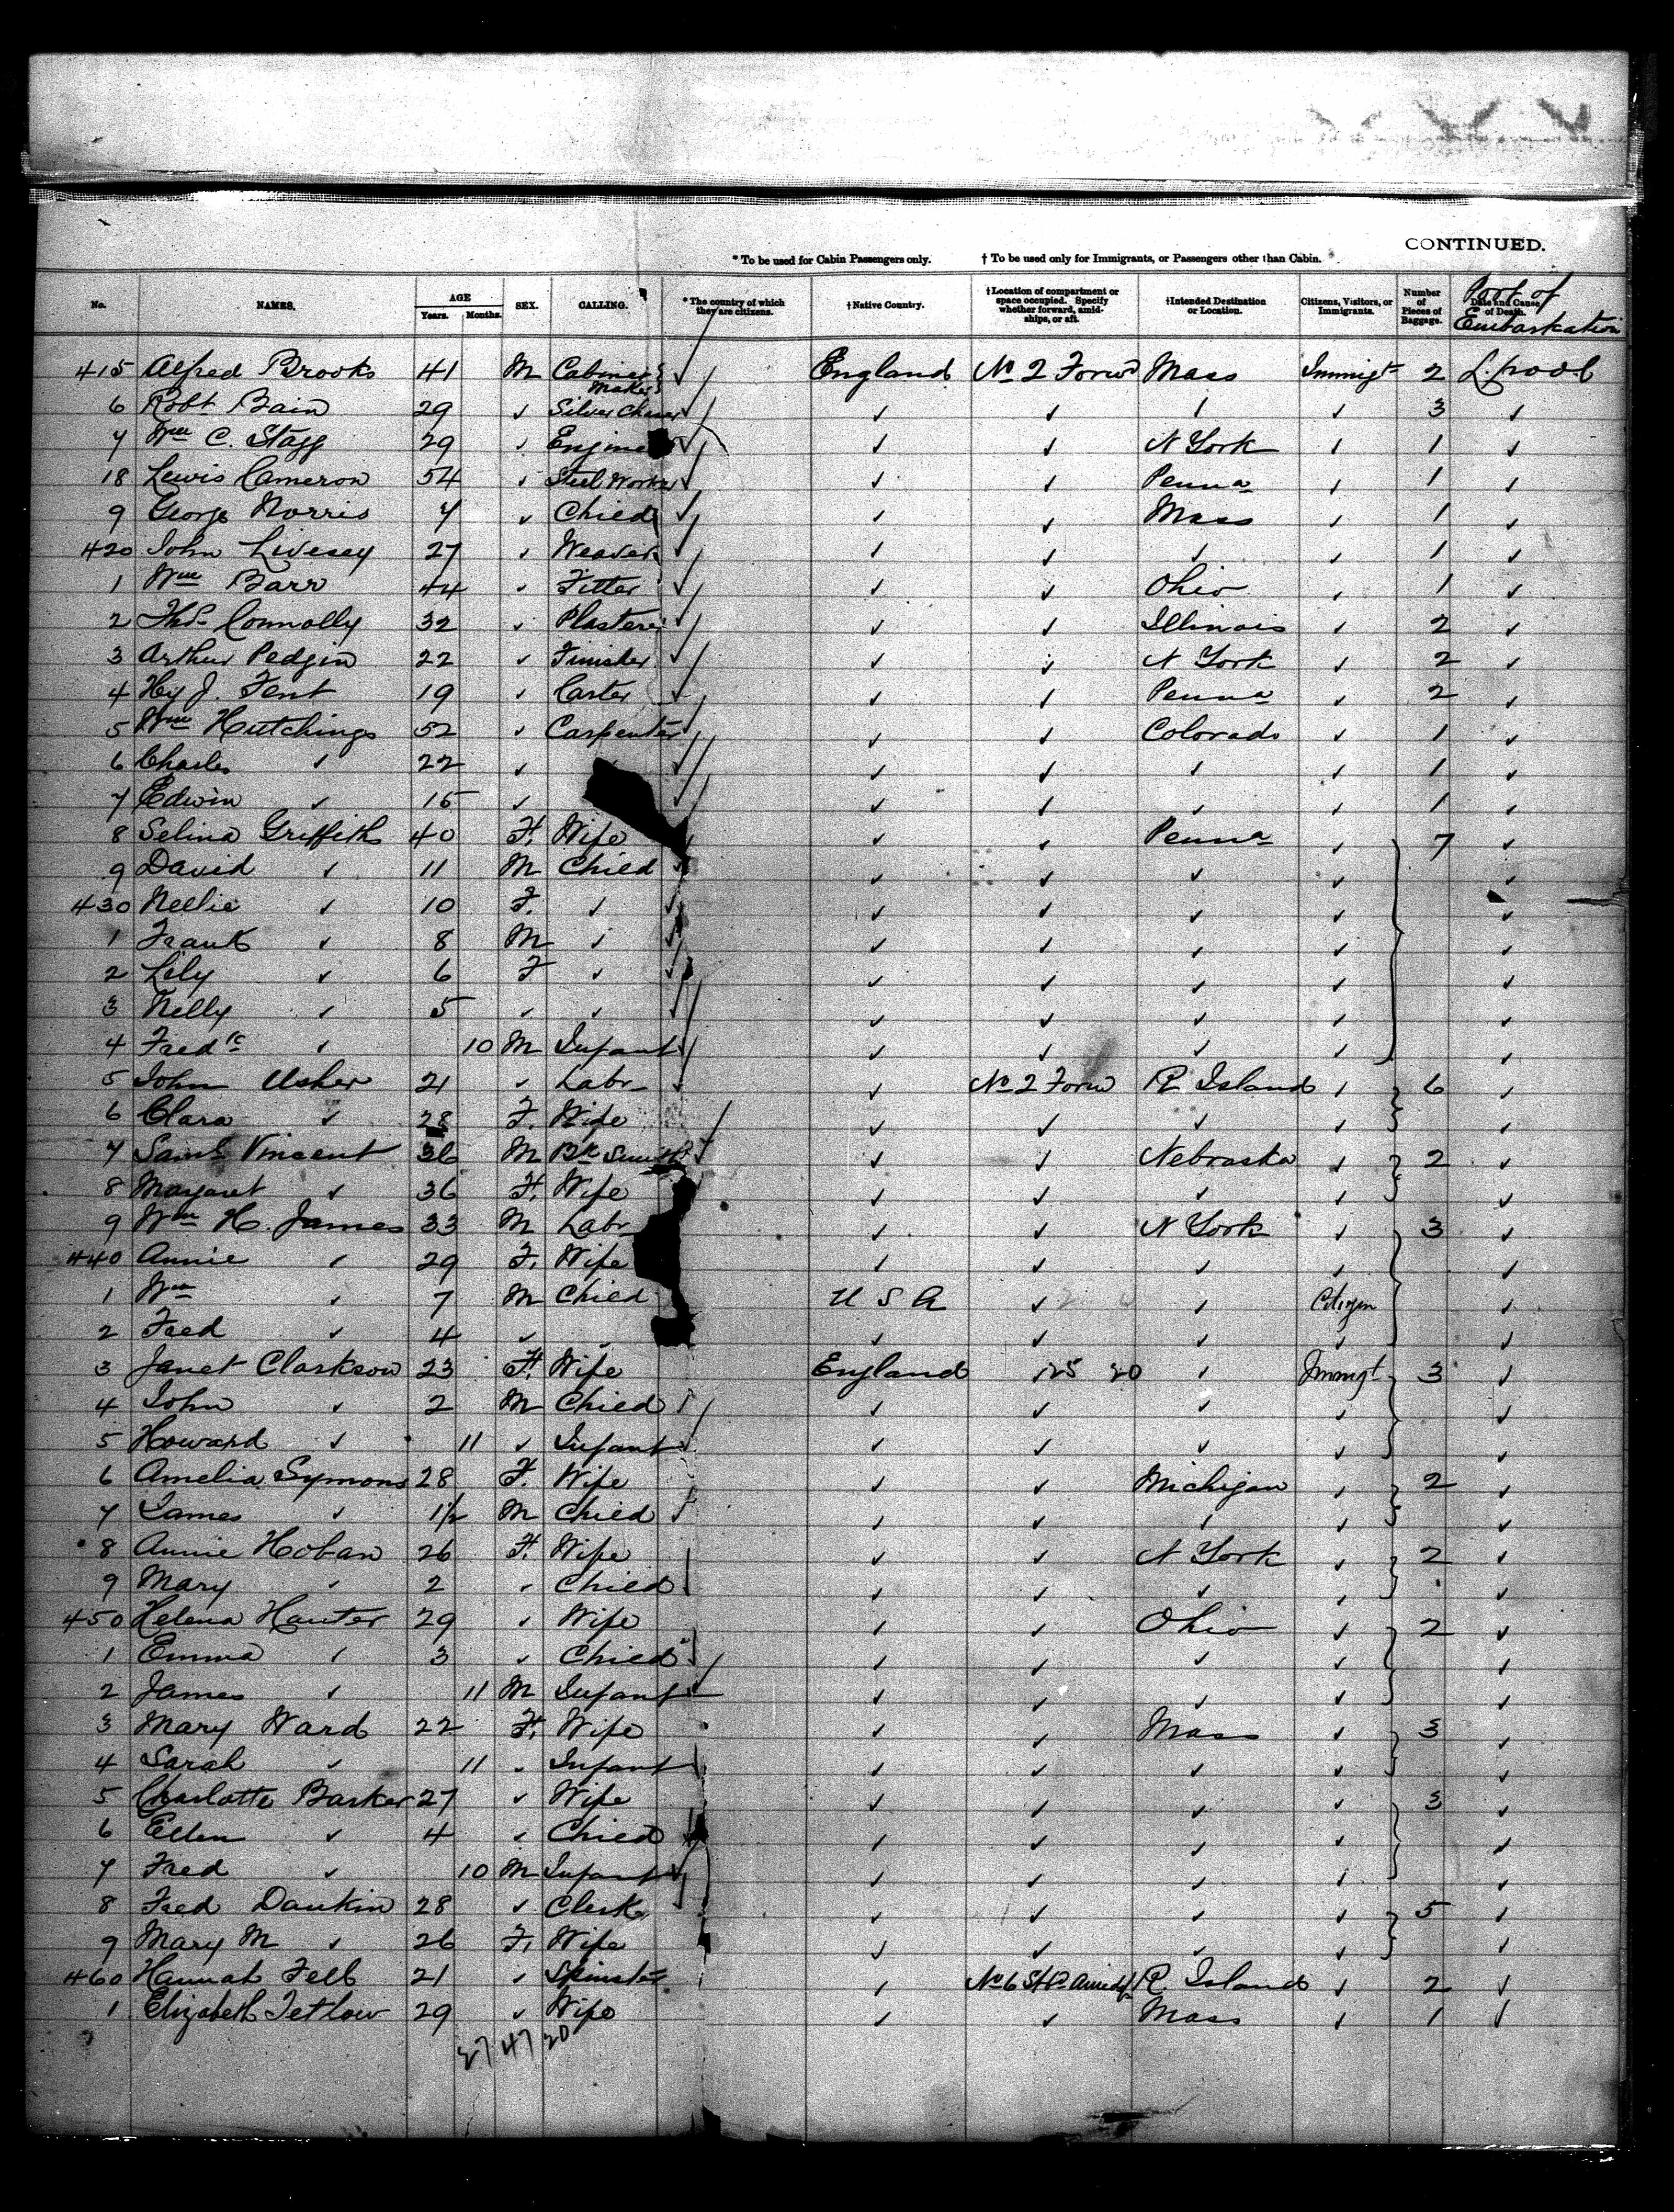 CONTINUED.
* To be used for Cabin Passengers only. † To be used only for Immigrants, or Passengers other than Cabin.
No. NAMES. AGE Years. Months. SEX. CALLING. * The country of which they are citizens. † Native Country. † Location of compartment or space occupied. Specify whether forward, amidships, or aft. † Intended Destination or Location. Citizens, Visitors, or Immigrants. Number of Pieces of Baggage. Date and Cause of Death. Port of Embarkation
415 Alfred Brooks 41 M Cabinet Maker England No 2 Forwd Mass Immigt 2 L.pool
6 Robt Bain 29 ✓ Silver Chaser ✓ ✓ ✓ ✓ 3 ✓
7 Wm C. Stagg 29 ✓ Engine ✓ ✓ N York ✓ 1 ✓
18 Lewis Cameron 54 ✓ Steel Worker ✓ ✓ Penna ✓ 1 ✓
9 George Norris 7 ✓ Child ✓ ✓ Mass ✓ 1 ✓
420 John Livesey 27 ✓ Weaver ✓ ✓ ✓ ✓ 1 ✓
1 Wm Barr 44 ✓ Fitter ✓ ✓ Ohio ✓ 1 ✓
2 Thos Connolly 32 ✓ Plasterer ✓ ✓ Illinois ✓ 2 ✓
3 Arthur Pedgin 22 ✓ Finisher ✓ ✓ N York ✓ 2 ✓
4 Hy J. Fent 19 ✓ Carter ✓ ✓ Penna ✓ 2 ✓
5 Wm Hutchings 52 ✓ Carpenter ✓ ✓ Colorado ✓ 1 ✓
6 Charles ✓ 22 ✓ ✓ ✓ ✓ ✓ 1 ✓
7 Edwin ✓ 15 ✓ ✓ ✓ ✓ ✓ 1 ✓
8 Selina Griffith 40 F. Wife ✓ ✓ Penna ✓ 7 ✓
9 David ✓ 11 M Child ✓ ✓ ✓ ✓ ✓
430 Nellie ✓ 10 F. ✓ ✓ ✓ ✓ ✓ ✓
1 Frank ✓ 8 M ✓ ✓ ✓ ✓ ✓ ✓
2 Lily ✓ 6 F ✓ ✓ ✓ ✓ ✓ ✓
3 Nelly ✓ 5 ✓ ✓ ✓ ✓ ✓ ✓ ✓
4 Fredk ✓ 10 M Infant ✓ ✓ ✓ ✓ ✓
5 John Usher 21 ✓ Labr ✓ No 2 Forw R Island ✓ 6 ✓
6 Clara ✓ 28 F. Wife ✓ ✓ ✓ ✓ ✓
7 Saml Vincent 36 M Bk Smith ✓ ✓ Nebraska ✓ 2 ✓
8 Margaret ✓ 36 F. Wife ✓ ✓ ✓ ✓ ✓
9 Wm H. James 33 M Labr ✓ ✓ N York ✓ 3 ✓
440 Annie ✓ 29 F. Wife ✓ ✓ ✓ ✓ ✓
1 Wm ✓ 7 M Child U S A ✓ ✓ Citizen ✓
2 Fred ✓ 4 ✓ ✓ ✓ ✓ ✓ ✓ ✓
3 Janet Clarkson 23 F. Wife England ✓ Immigt 3 ✓
4 John ✓ 2 M Child ✓ ✓ ✓ ✓ ✓
5 Howard ✓ 11 ✓ Infant ✓ ✓ ✓ ✓ ✓
6 Amelia Symons 28 F. Wife ✓ ✓ Michigan ✓ 2 ✓
7 James ✓ 1½ M Child ✓ ✓ ✓ ✓ ✓
8 Annie Hoban 26 F. Wife ✓ ✓ N York ✓ 2 ✓
9 Mary ✓ 2 ✓ Child ✓ ✓ ✓ ✓ ✓
450 Helena Hanter 29 ✓ Wife ✓ ✓ Ohio ✓ 2 ✓
1 Emma ✓ 3 ✓ Child ✓ ✓ ✓ ✓ ✓
2 James ✓ 11 M Infant ✓ ✓ ✓ ✓ ✓
3 Mary Ward 22 F. Wife ✓ ✓ Mass ✓ 3 ✓
4 Sarah ✓ 11 ✓ Infant ✓ ✓ ✓ ✓ ✓
5 Charlotte Barker 27 ✓ Wife ✓ ✓ ✓ ✓ 3 ✓
6 Ellen ✓ 4 ✓ Child ✓ ✓ ✓ ✓ ✓
7 Fred ✓ 10 M Infant ✓ ✓ ✓ ✓ ✓
8 Fred Dankin 28 ✓ Clerk ✓ ✓ ✓ ✓ 5 ✓
9 Mary M ✓ 26 F. Wife ✓ ✓ ✓ ✓ ✓
460 Hannah Fell 21 ✓ Spinster ✓ No 6 R. Island ✓ 2 ✓
1 Elizabeth Tetlow 29 ✓ Wife ✓ ✓ Mass ✓ 1 ✓
27 47 20